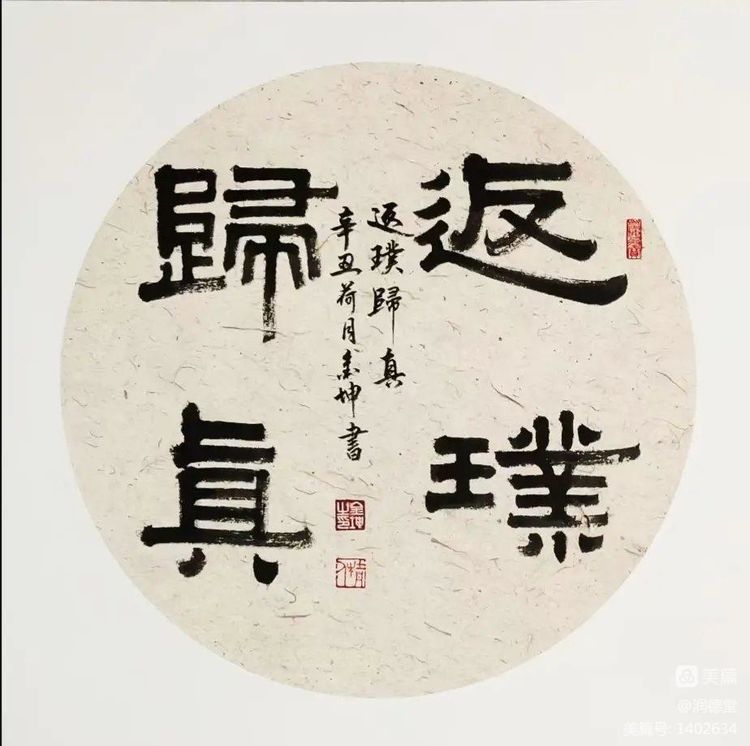 返璞
歸真
返璞歸真
辛丑荷月金坤書
美篇
@润德堂
美篇号: 1402634